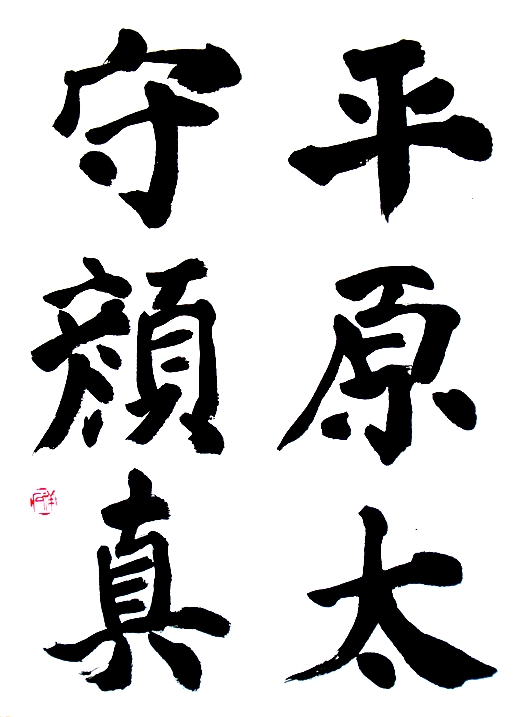 平原太
守顔真